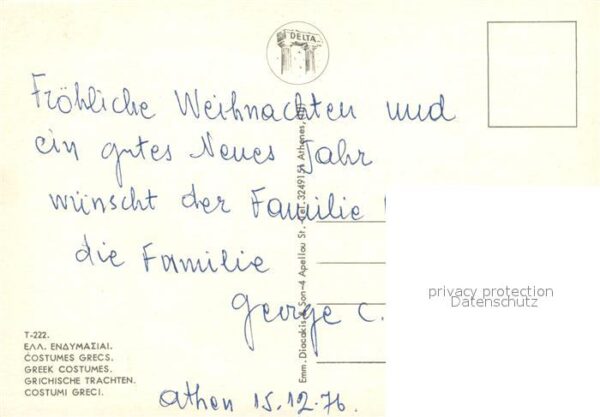 DELTA
Fröhliche Weihnachten und
ein gutes Neues Jahr
wünscht der Familie
die Familie
George C.
Athen 15.12.76.
T-222.
ΕΛΛ. ΕΝΔΥΜΑΣΙΑΙ.
COSTUMES GRECS.
GREEK COSTUMES.
GRICHISCHE TRACHTEN.
COSTUMI GRECI.
Emm. Diacakis & Son-4 Apellou St.-Tel. 3249154 Athenes,
privacy protection
Datenschutz